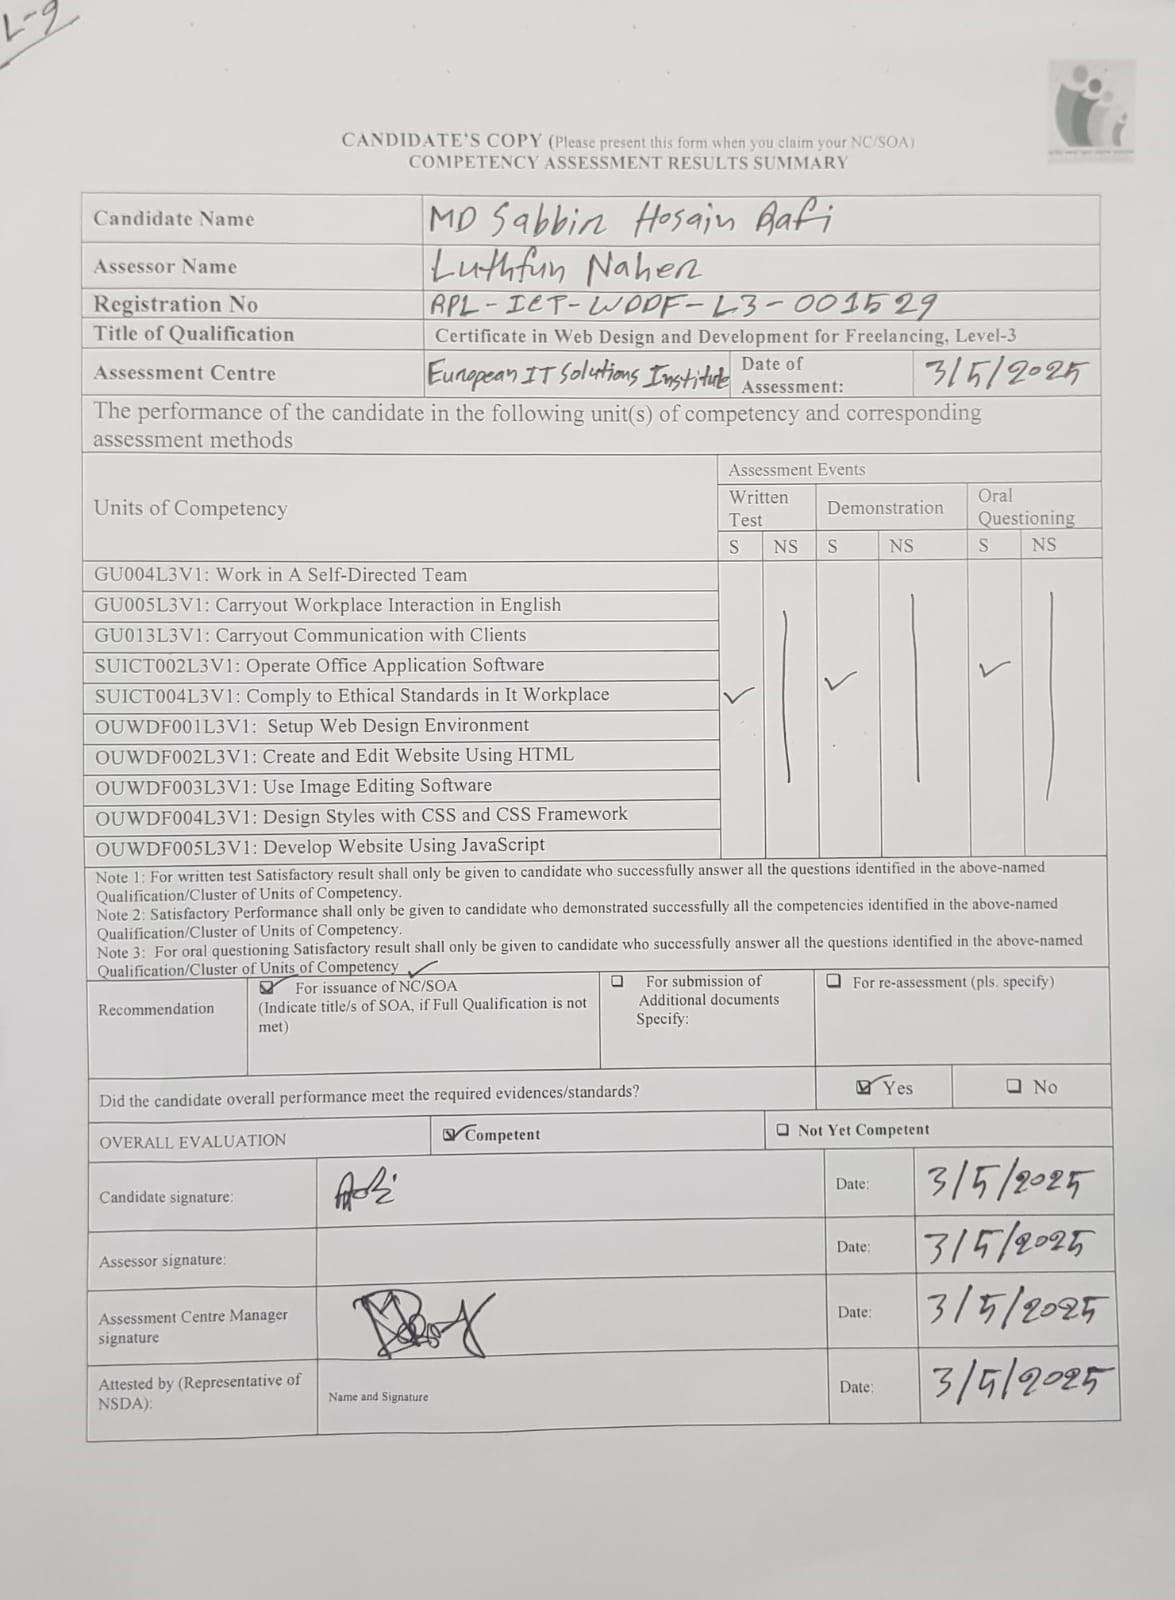 L-9
CANDIDATE'S COPY (Please present this form when you claim your NC/SOA)
COMPETENCY ASSESSMENT RESULTS SUMMARY
Candidate Name MD Sabbir Hosain Rafi
Assessor Name Luthfun Naher
Registration No RPL-ICT-WDDF-L3-001529
Title of Qualification Certificate in Web Design and Development for Freelancing, Level-3
Assessment Centre European IT Solutions Institute Date of Assessment: 3/5/2025
The performance of the candidate in the following unit(s) of competency and corresponding
assessment methods
Units of Competency
Assessment Events
Written Test Demonstration Oral Questioning
S NS S NS S NS
GU004L3V1: Work in A Self-Directed Team
GU005L3V1: Carryout Workplace Interaction in English
GU013L3V1: Carryout Communication with Clients
SUICT002L3V1: Operate Office Application Software
SUICT004L3V1: Comply to Ethical Standards in It Workplace
OUWDF001L3V1: Setup Web Design Environment
OUWDF002L3V1: Create and Edit Website Using HTML
OUWDF003L3V1: Use Image Editing Software
OUWDF004L3V1: Design Styles with CSS and CSS Framework
OUWDF005L3V1: Develop Website Using JavaScript
Note 1: For written test Satisfactory result shall only be given to candidate who successfully answer all the questions identified in the above-named
Qualification/Cluster of Units of Competency.
Note 2: Satisfactory Performance shall only be given to candidate who demonstrated successfully all the competencies identified in the above-named
Qualification/Cluster of Units of Competency.
Note 3: For oral questioning Satisfactory result shall only be given to candidate who successfully answer all the questions identified in the above-named
Qualification/Cluster of Units of Competency
Recommendation
For issuance of NC/SOA
(Indicate title/s of SOA, if Full Qualification is not
met)
For submission of
Additional documents
Specify:
For re-assessment (pls. specify)
Did the candidate overall performance meet the required evidences/standards? Yes No
OVERALL EVALUATION Competent Not Yet Competent
Candidate signature: Rafi Date: 3/5/2025
Assessor signature: Date: 3/5/2025
Assessment Centre Manager
signature
Date: 3/5/2025
Attested by (Representative of
NSDA):
Name and Signature
Date: 3/5/2025